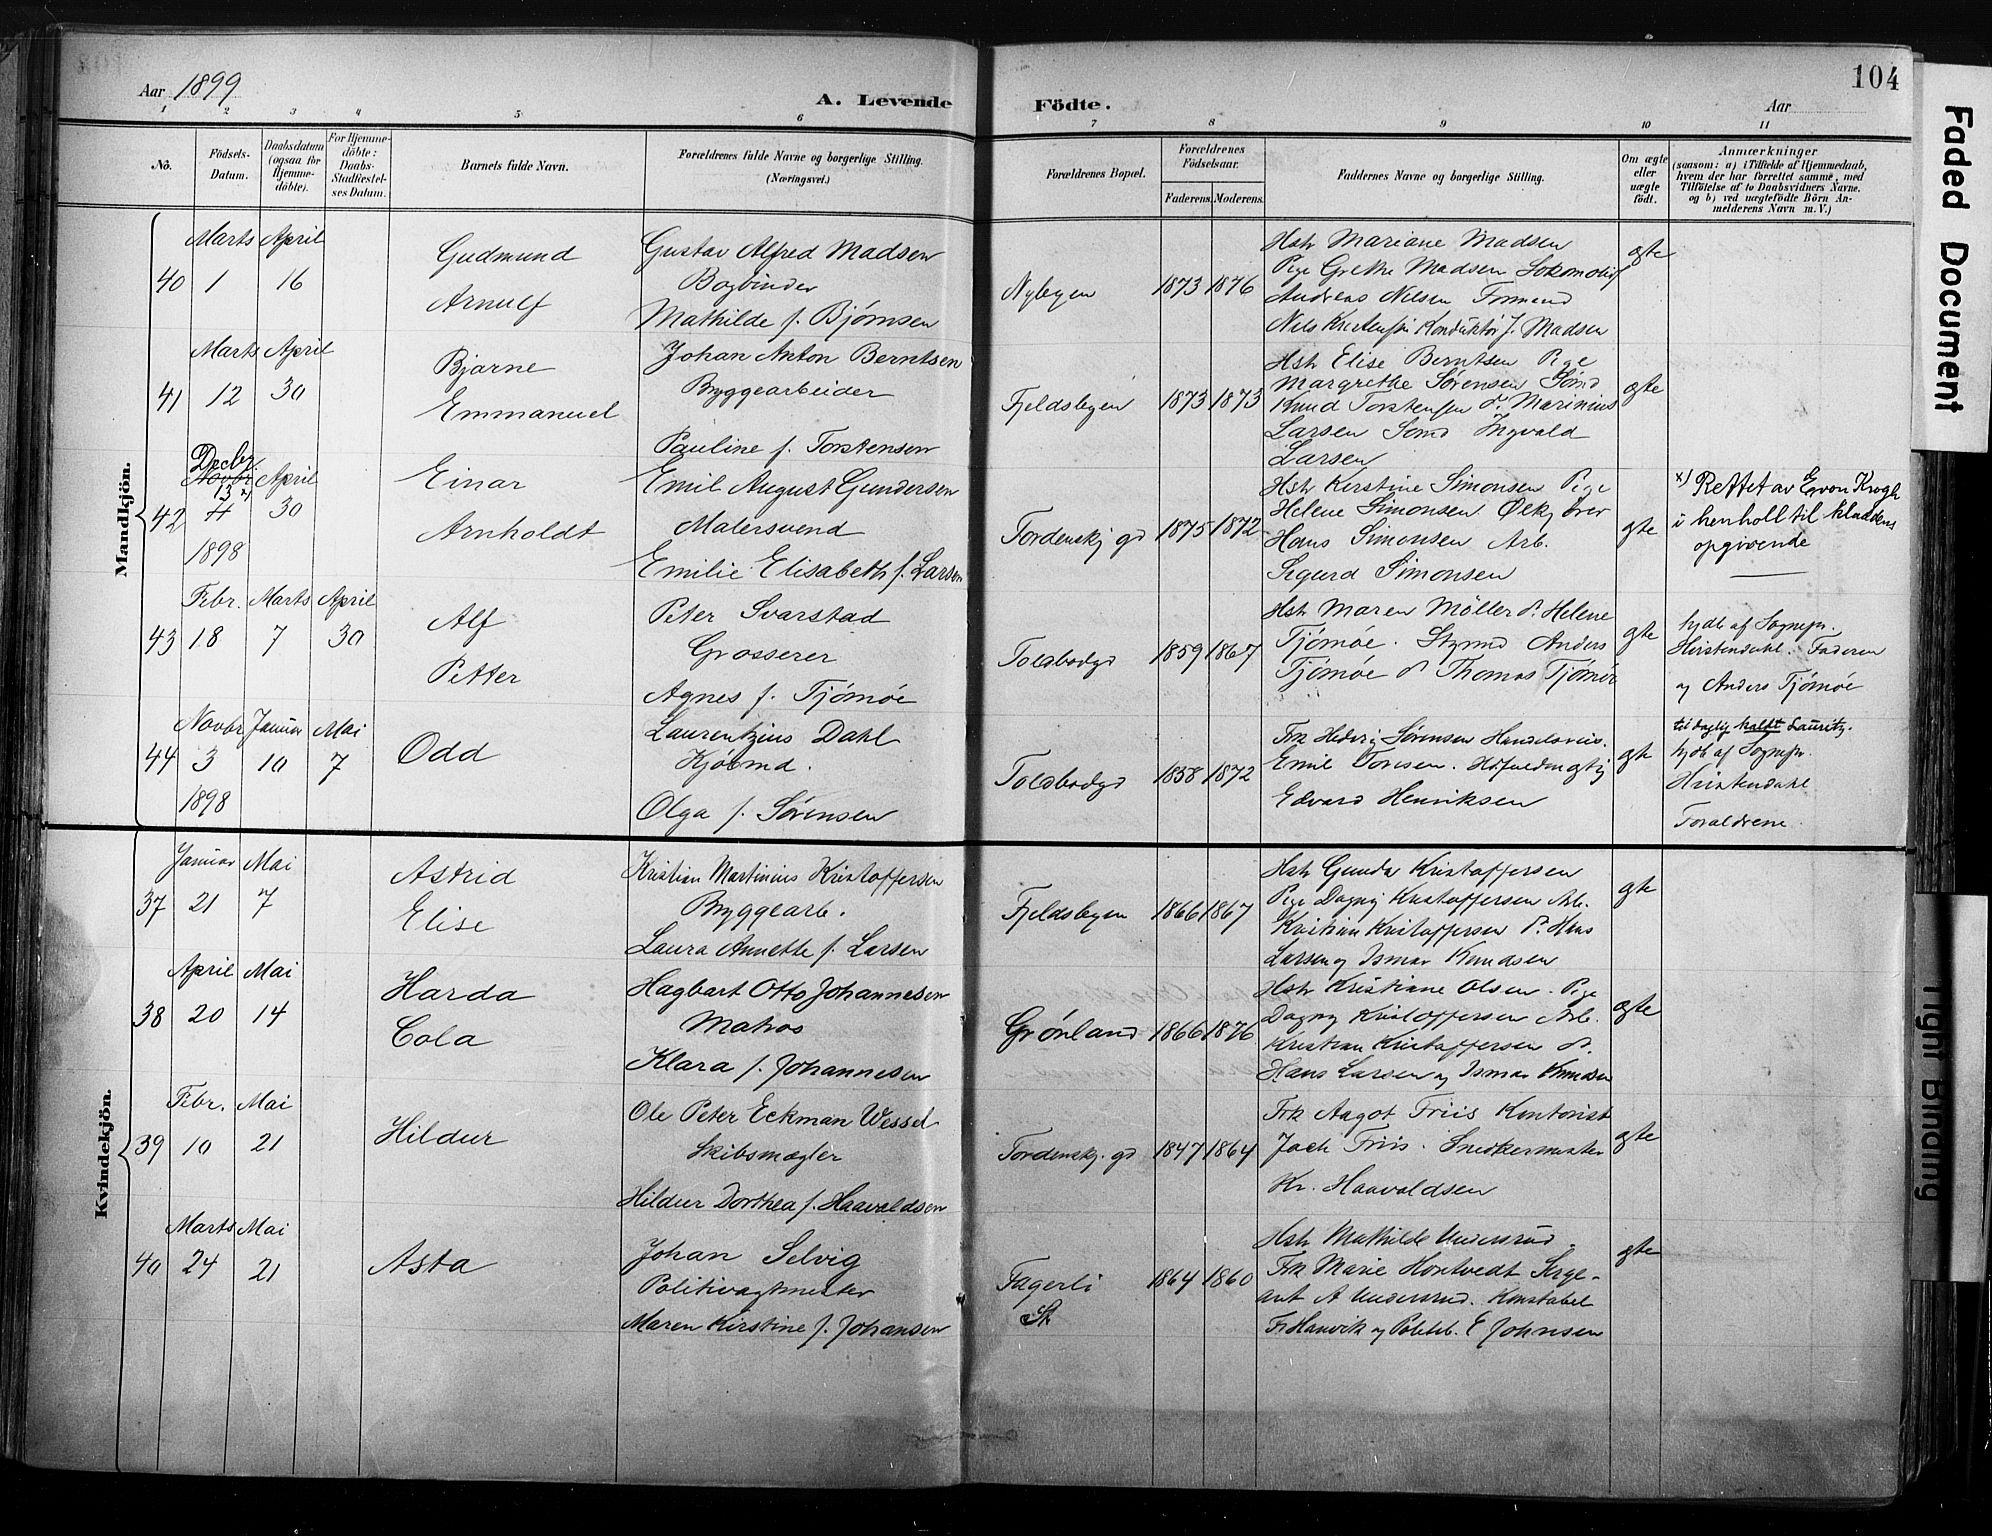 104
Aar 1899
A. Levende Födte.
Aar
1 2 3 4 5 6 7 8 9 10 11
Nô.
Födsels-Datum.
Daabsdatum (ogsaa for Hjemme-döbte).
For Hjemme-döbte: Daabs-Stadfæstel-ses Datum.
Barnets fulde Navn.
Forældrenes fulde Navne og borgerlige Stilling. (Næringsvei.)
Forældrenes Bopæl.
Forældrenes Födselsaar.
Faderens. Moderens.
Faddernes Navne og borgerlige Stilling.
Om ægte eller uægte födt.
Anmærkninger
(saasom: a) i Tilfælde af Hjemmedaab, hvem der har forrettet samme, med Tilföielse af to Daabsvidners Navne. og b) ved uægtefödte Börn An-melderens Navn m. V.)
Mandkjön.
40
Marts April
1 16
Gudmund
Arnulf
Gustav Alfred Madsen
Bogbinder
Mathilde f. Bjørnsen
Nybyen
1873 1876
Hstr Mariane Madsen
Pige Grethe Madsen Lokomotif
Andreas Nilsen Formand
Nils Kristensen Konduktør J. Madsen
ægte
41
Marts April
12 30
Bjarne
Emmanuel
Johan Anton Berntsen
Byggearbeider
Pauline f. Torstensen
Fjeldsbyen
1873 1873
Hstr Elise Berntsen Pige
Margrethe Sørensen Sömd
Knud Torstensen do Marinius
Larsen Sömd Ingvald
Larsen
ægte
42
Decbr.
Novbr April
13 x)
11 30
1898
Einar
Arnholdt
Emil August Gundersen
Malersvend
Emilie Elisabeth f. Larsen
Tordenskj. gd
1875 1872
Hstr Kerstine Simonsen Pige
Helene Simonsen Ølkj
Hans Simonsen Arb.
Sigurd Simonsen
ægte
x) Rettet av E von Krogh
i henhold til kladdens
opgivende
43
Febr. Marts April
18 7 30
Alf
Petter
Peter Svarstad
Grosserer
Agnes f. Tjömöe
Toldbodgd
1859 1867
Hstr Maren Möller do Helene
Tjömöe. Styrmd Anders
Tjömöe do Thomas Tjömöe
ægte
hjdb af Sognepr.
Kristendahl. Faderen
og Anders Tjömöe
44
Novbr Januar Mai
3 10 7
1898
Odd
Laurentzius Dahl
Kjöbmd.
Olga f. Sörensen
Toldbodgd
1858 1872
Frk Hedvig Sørensen Handelsreis.
Emil Toresen.
Edvard Henriksen
ægte
til daglig kaldt Lauritz.
hjdb af Sognepr.
Kristendahl
Forældrene
Kvindekjön.
37
Januar Mai
21 7
Astrid
Elise
Kristian Martinius Kristoffersen
Byggearb.
Laura Annette f. Larsen
Fjeldsbyen
1866 1867
Hstr Gunda Kristoffersen
Pige Dagny Kristoffersen Arb.
Kristian Kristoffersen do Hans
Larsen og Ismar Knudsen
ægte
38
April Mai
20 14
Harda
Cola
Hagbart Otto Johannesen
Matros
Klara f. Johannesen
Grönland
1866 1876
Hstr Kristiane Olsen. Pige
Dagny Kristoffersen Arb.
Kristian Kristoffersen do.
Hans Larsen og Ismar Knudsen
ægte
39
Febr. Mai
10 21
Hildur
Ole Peter Eckman Wessel
Skibsmægler
Hildur Dorthea f. Haavaldsen
Tordenskj. gd
1847 1864
Frk Aagot Friis Kontorist
Jack Friis. Snedkermester
Kr. Haavaldsen
ægte
40
Marts Mai
24 21
Asta
Johan Selvig
Politivagtmester
Maren Kirstine f. Johansen
Fagerli
St
1864 1860
Hstr Mathilde Undersrud.
Frk Marie Hontvedt Serge-
ant A Undersrud. Konstabel
Fr Hanvik og Politib. E Johnsen
ægte
Faded Document
Tight Binding